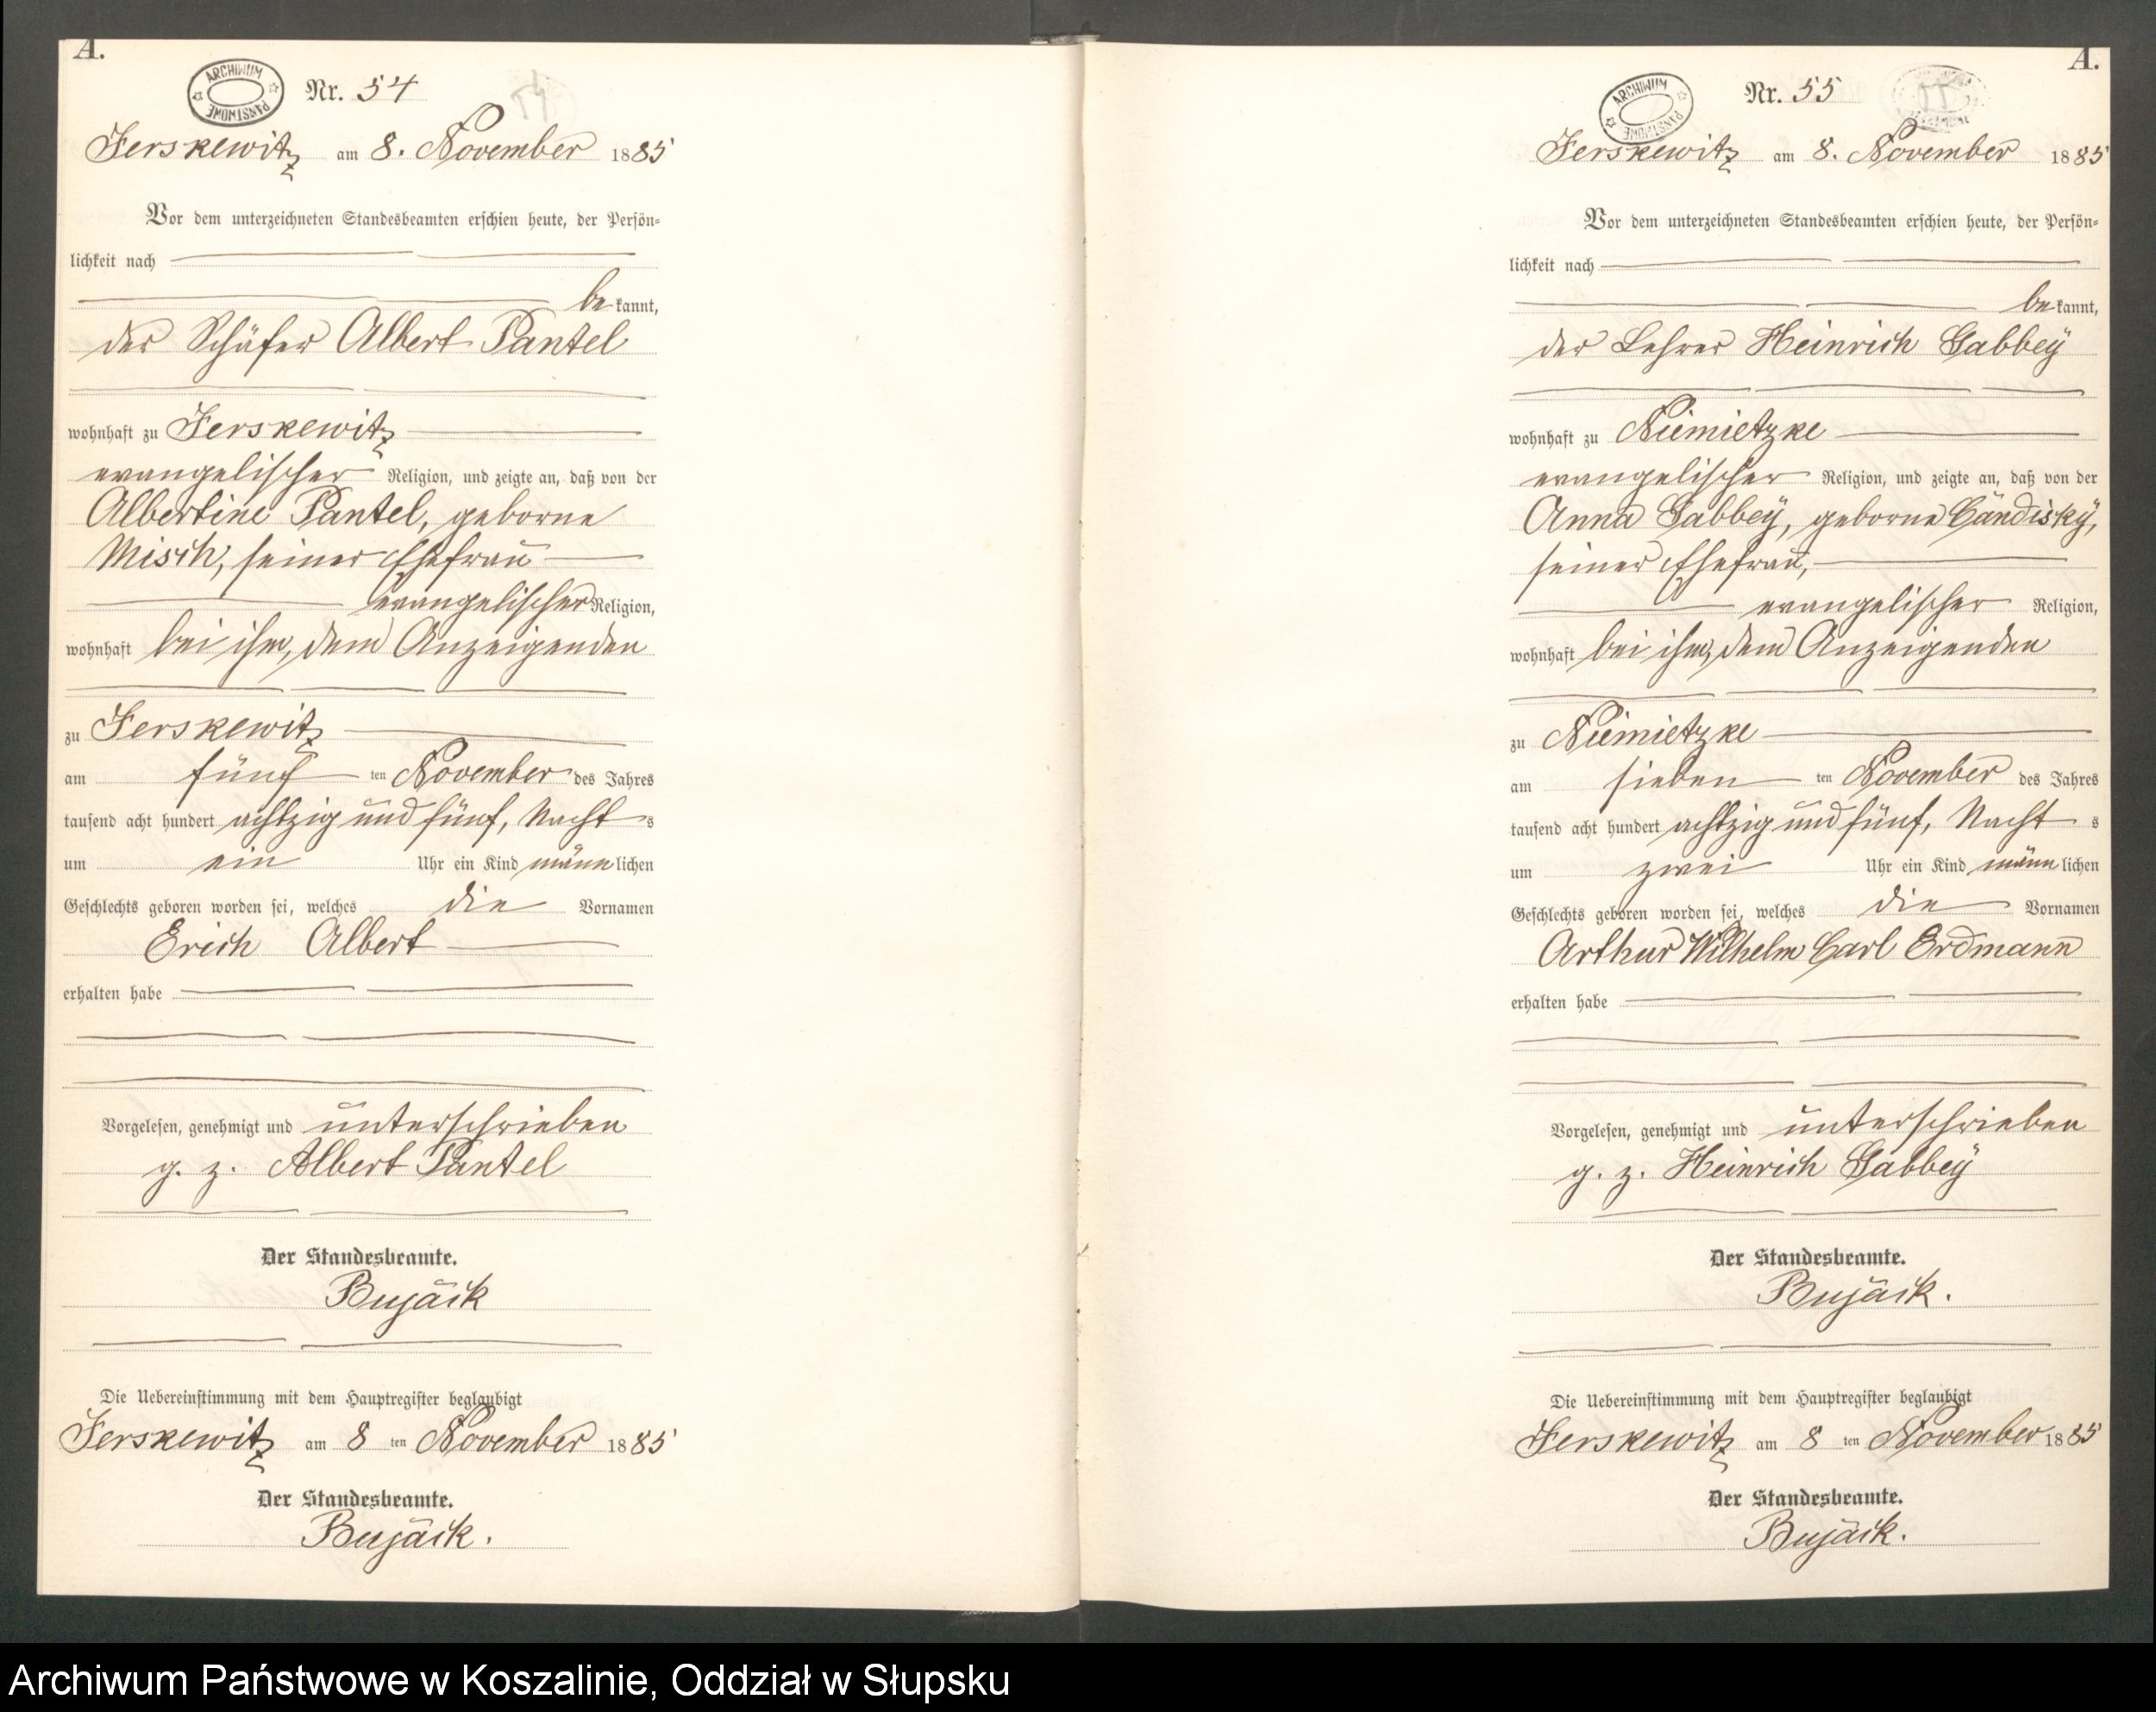 A.
ARCHIWUM PAŃSTWOWE
Nr. 54
54
Jerskewitz am 8. November 1885
Vor dem unterzeichneten Standesbeamten erschien heute, der Persön-
lichkeit nach
be kannt,
der Schäfer Albert Pantel
wohnhaft zu Jerskewitz
evangelischer Religion, und zeigte an, daß von der
Albertine Pantel, geborne
Misch, seiner Ehefrau
evangelischer Religion,
wohnhaft bei ihm, dem Anzeigenden
zu Jerskewitz
am fünf ten November des Jahres
tausend acht hundert achtzig und fünf, Nacht s
um ein Uhr ein Kind männ lichen
Geschlechts geboren worden sei, welches die Vornamen
Erich Albert
erhalten habe
Vorgelesen, genehmigt und unterschrieben
g. z. Albert Pantel
Der Standesbeamte.
Bujack
Die Uebereinstimmung mit dem Hauptregister beglaubigt
Jerskewitz am 8 ten November 1885
Der Standesbeamte.
Bujack.
A.
ARCHIWUM PAŃSTWOWE
Nr. 55
Jerskewitz am 8. November 1885
Vor dem unterzeichneten Standesbeamten erschien heute, der Persön-
lichkeit nach
be kannt,
der Lehrer Heinrich Gabbey
wohnhaft zu Niemietzke
evangelischer Religion, und zeigte an, daß von der
Anna Gabbey, geborne Candisky,
seiner Ehefrau,
evangelischer Religion,
wohnhaft bei ihm, dem Anzeigenden
zu Niemietzke
am sieben ten November des Jahres
tausend acht hundert achtzig und fünf, Nacht s
um zwei Uhr ein Kind männ lichen
Geschlechts geboren worden sei, welches die Vornamen
Arthur Wilhelm Carl Erdmann
erhalten habe
Vorgelesen, genehmigt und unterschrieben
g. z. Heinrich Gabbey
Der Standesbeamte.
Bujack.
Die Uebereinstimmung mit dem Hauptregister beglaubigt
Jerskewitz am 8 ten November 1885
Der Standesbeamte.
Bujack.
Archiwum Państwowe w Koszalinie, Oddział w Słupsku